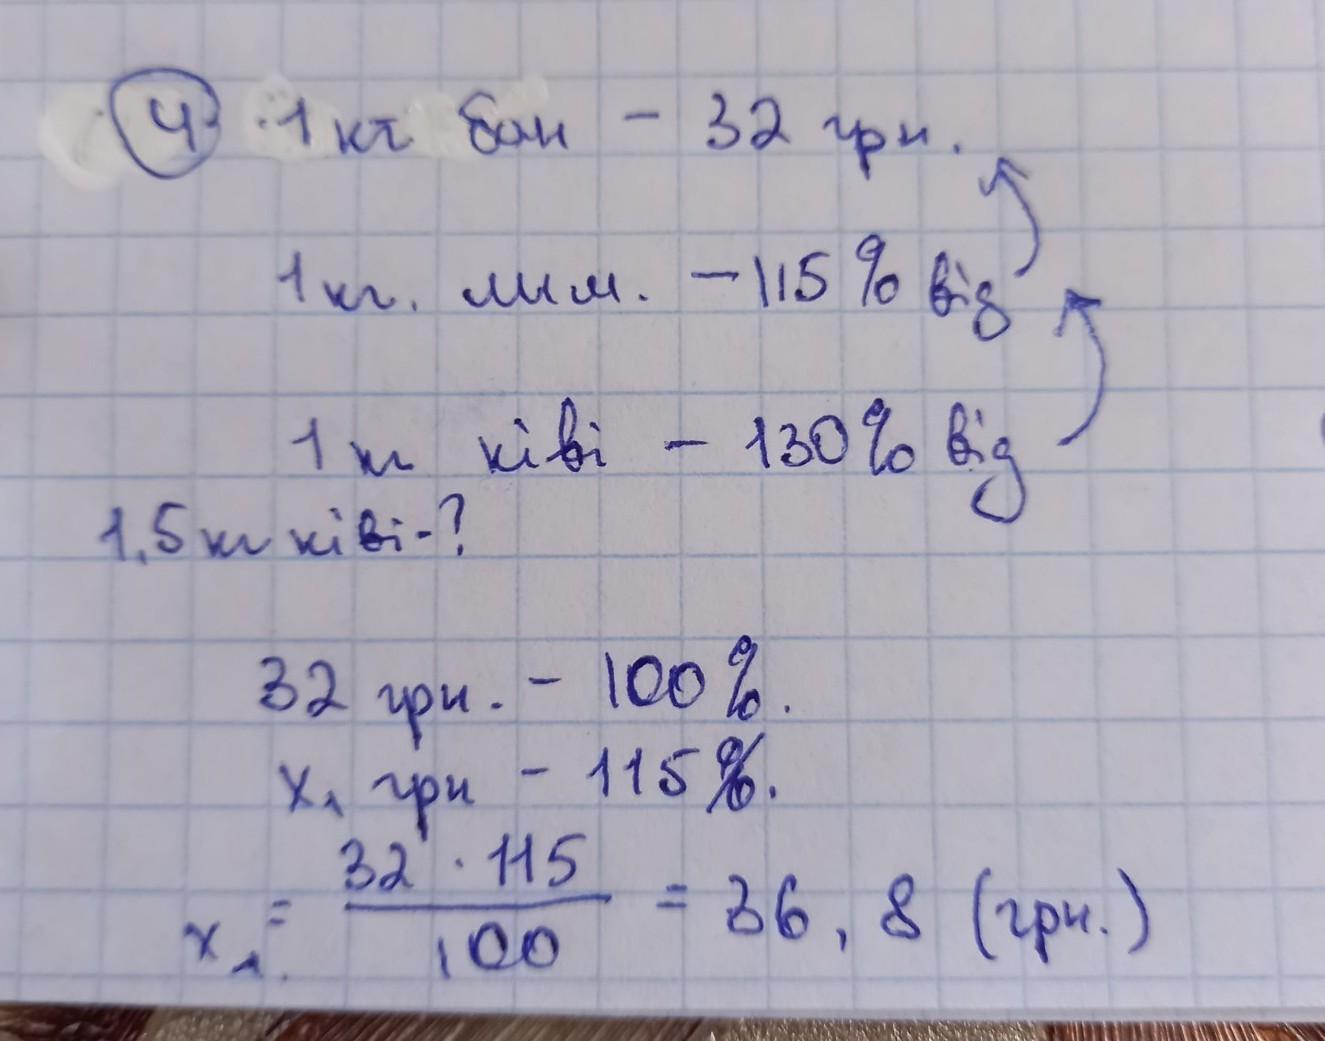 4 1 кг бан - 32 грн.
1 кг. лим. - 115% від
1 кг ківі - 130% від
1,5 кг ківі - ?
32 грн. - 100%.
x₁ грн - 115%.
x₁ = 32 · 115 / 100 = 36,8 (грн.)